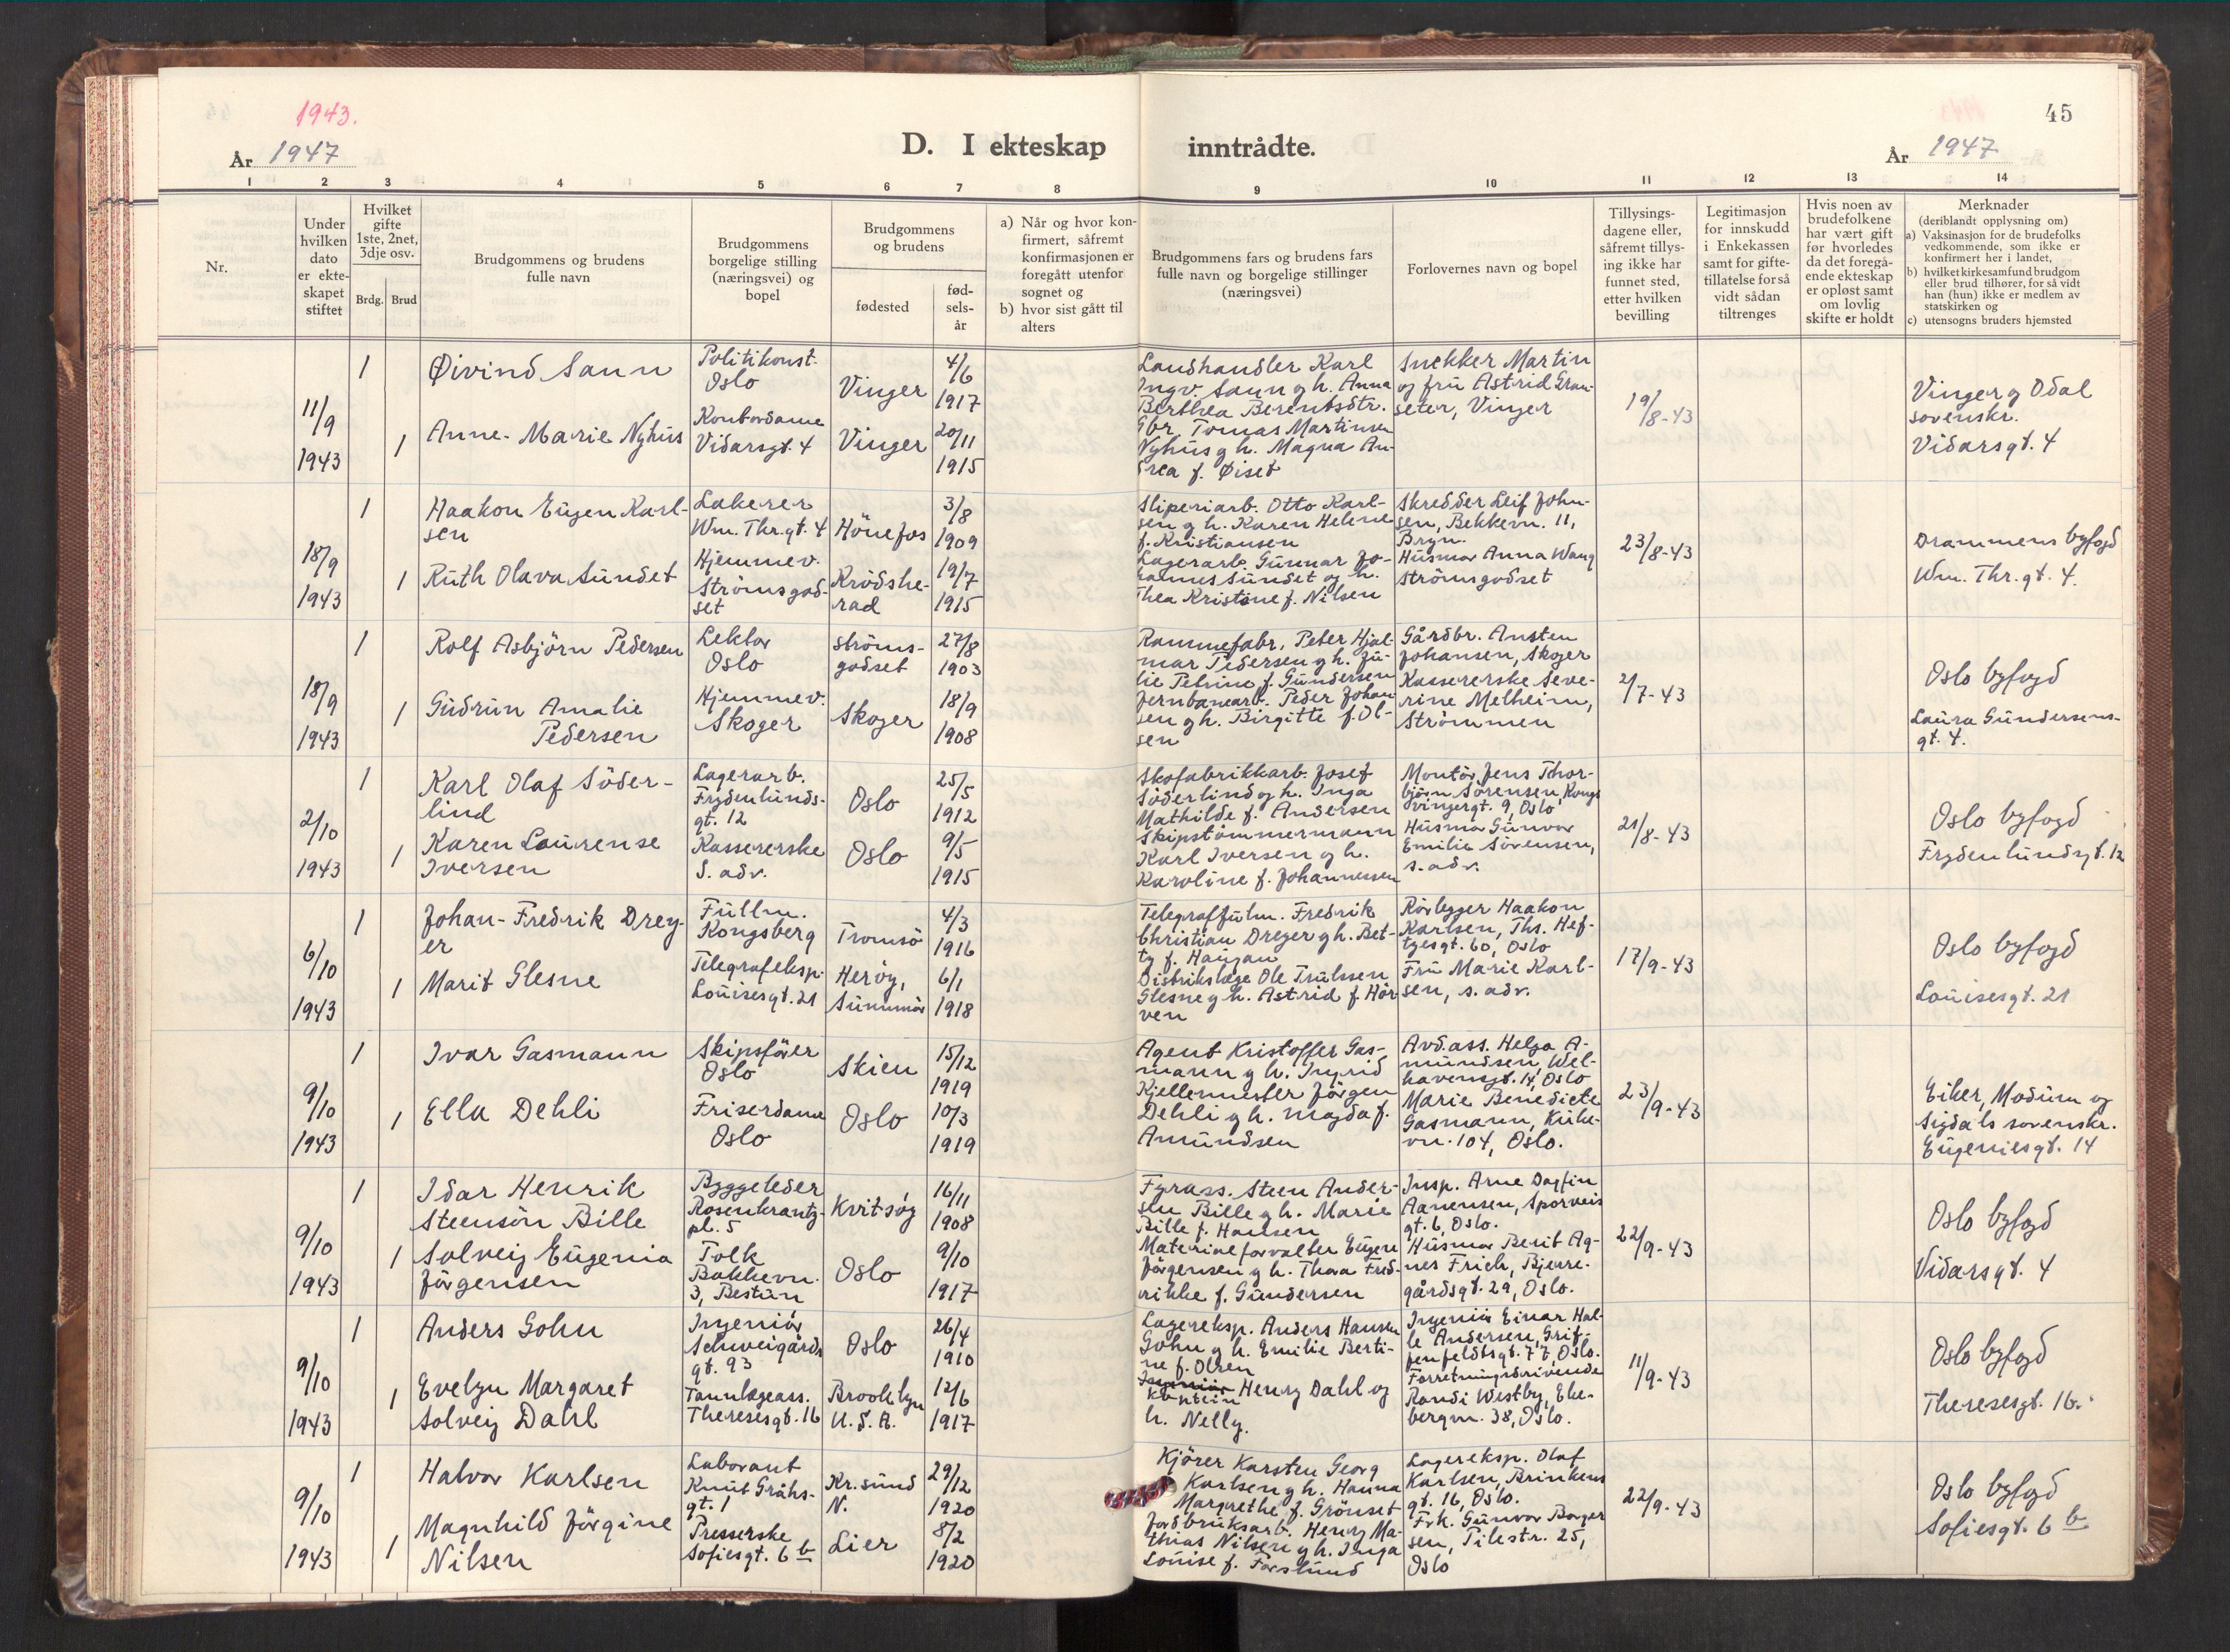 1943.
45
År 1947
D. I ekteskap inntrådte.
År 1947
1 2 3 4 5 6 7 8 9 10 11 12 13 14
Nr.
Under hvilken dato er ekteskapet stiftet
Hvilket gifte 1ste, 2net, 3dje osv.
Brdg. Brud
Brudgommens og brudens fulle navn
Brudgommens borgelige stilling (næringsvei) og bopel
Brudgommens og brudens
fødested
fødselsår
a) Når og hvor konfirmert, såfremt konfirmasjonen er foregått utenfor sognet og
b) hvor sist gått til alters
Brudgommens fars og brudens fars fulle navn og borgelige stillinger (næringsvei)
Forlovernes navn og bopel
Tillysingsdagene eller, såfremt tillysing ikke har funnet sted, etter hvilken bevilling
Legitimasjon for innskudd i Enkekassen samt for giftetillatelse for så vidt sådan tiltrenges
Hvis noen av brudefolkene har vært gift før hvorledes da det foregående ekteskap er opløst samt om lovlig skifte er holdt
Merknader
(deriblandt opplysning om)
a) Vaksinasjon for de brudefolks vedkommende, som ikke er konfirmert her i landet,
b) hvilket kirkesamfund brudgom eller brud tilhører, for så vidt han (hun) ikke er medlem av statskirken og
c) utensogns bruders hjemsted
11/9 1943
1
Øivind Saun
Politikonst.
Oslo
Vinger
4/6
1917
1
Anne-Marie Nyhus
Kontordame
Vidarsgt. 4
Vinger
20/11
1915
Landhandler Karl
Ingv. Saun og h. Anna
Berthea Berentsdtr.
Gbr. Tomas Martinsen
Nyhus og h. Magna An-
drea f. Øiset
Snekker Martin
og fru Astrid Gran-
seter, Vinger
19/8-43
Vinger og Odal
sorenskr.
Vidarsgt. 4
18/9 1943
1
Haakon Eugen Karl-
sen
Lakerer
Wm. Thr. gt. 4
Hönefos
3/8
1909
1
Ruth Olava Sundet
Hjemmev.
Strömsgod-
set
Krödshe-
rad
19/7
1915
Sliperiarb. Otto Karl-
sen og h. Karen Helene
f. Kristiansen
Lagerarb. Gunnar Jo-
hannes Sundet og h.
Thea Kristine f. Nilsen
Skredder Leif John-
sen, Bekkevn. 11,
Bryn.
Husmor Anna Wang
Strömsgodset
23/8-43
Drammens byfogd
Wm. Thr. gt. 4.
18/9 1943
1
Rolf Asbjörn Pedersen
Lektor
Oslo
Ströms-
godset
27/8
1903
1
Gudrun Amalie
Pedersen
Hjemmev.
Skoger
Skoger
18/9
1908
Rammefabr. Peter Hjal-
mar Pedersen og h. Ju-
lie Petrine f. Gundersen
Jernbanearb. Peder Johan
sen og h. Birgitte f. Ol-
sen
Gårdbr. Ansten
Johansen, Skoger
Kassererske Seve-
rine Melheim,
Strömmen
2/7-43
Oslo byfogd
Laura Gundersens-
gt. 4.
2/10 1943
1
Karl Olaf Söder-
lind
Lagerarb.
Frydenlunds-
gt. 12
Oslo
25/5
1912
1
Karen Laurense
Iversen
Kassererske
S. adr.
Oslo
9/5
1915
Skofabrikkarb. Josef
Söderlind og h. Inga
Mathilde f. Andersen
Skipstömmermann
Karl Iversen og h.
Karoline f. Johannessen
Montör Jens Thor-
björn Sörensen, Kongs
vingergt. 9, Oslo
Husmor Gunvor
Emilie Sörensen,
s. adr.
21/8-43
Oslo byfogd
Frydenlundgt. 12
6/10 1943
1
Johan-Fredrik Drey-
er
Fullm.
Kongsberg
Tromsö
4/3
1916
1
Marit Glesne
Telegrafeksp.
Louisesgt. 21
Heröy,
Sunnmör
6/1
1918
Telegraffulm. Fredrik
Christian Dreyer og h. Bet-
ty f. Haugan
Distriktslæge Ole Trulssen
Glesne og h. Astrid f. Hör
ven
Rörlegger Haakon
Karlsen, Ths. Hef-
tyesgt. 60, Oslo
Fru Marie Karl-
sen, s. adr.
17/9-43
Oslo byfogd
Louisesgt. 21
9/10 1943
1
Ivar Gasmann
Skipsförer
Oslo
Skien
15/12
1919
1
Ella Dehli
Friserdame
Oslo
Oslo
10/3
1919
Agent Kristoffer Gas-
mann og h. Ingrid
Kjellermester Jörgen
Dehli og h. Magda f.
Amundsen
Avd.ass. Helga A-
mundsen, Wel-
havensgt. 14, Oslo
Marie Benedicte
Gasmann, Kirke-
vn. 104, Oslo.
23/9-43
Eiker, Modum og
Sigdals sorenskr.
Eugeniesgt. 14
9/10 1943
1
Idar Henrik
Steensön Bille
Byggeleder
Rosenkrantz-
pl. 5
Kvitsøy
16/11
1908
1
Solveig Eugenia
Jörgensen
Tolk
Bakkevn.
3, Bestun
Oslo
9/10
1917
Fyrass. Steen Ander-
sen Bille og h. Marie
Bille f. Hansen
Materialforvalter Eugen
Jörgensen og h. Thora Fred-
rikke f. Gundersen
Insp. Arne Dagfin
Aanensen, Sporveis
gt. 6, Oslo.
Husmor Berit Ag-
nes Frich, Bjerre-
gårdsgt. 29, Oslo.
22/9-43
Oslo byfogd
Vidarsgt. 4
9/10 1943
1
Anders Gohn
Ingeniör
Schweigårds
gt. 93
Oslo
26/4
1910
1
Evelyn Margaret
Solveig Dahl
Tannlægeass.
Theresesgt. 16
Brooklyn
U.S.A.
12/6
1917
Lagereksp. Anders Hansen
Gohn og h. Emilie Berti-
ne f. Olsen
Henry Dahl og
h. Nelly.
Ingeniör Einar Hal-
le Andersen, Grif-
fenfeldtsgt. 77, Oslo.
Forretningsdrivende
Randi Westby, Eke-
bergvn. 38, Oslo.
11/9-43
Oslo byfogd
Theresesgt. 16.
9/10 1943
1
Halvor Karlsen
Laborant
Knut Gråhs-
gt. 1
Kr.sund
N.
29/12
1920
1
Magnhild Jörgine
Nilsen
Presserske
Sofiesgt. 6 b
Lier
8/2
1920
Kjörer Karsten Georg
Karlsen og h. Hanna
Margrethe f. Grönset
Jordbruksarb. Henry Ma-
thias Nilsen og h. Inga
Louise f. Forslund
Lagereksp. Olaf
Karlsen, Brinkens
gt. 16, Oslo.
Frk. Gunvor Borger
sen, Pilestr. 25,
Oslo
22/9-43
Oslo byfogd
Sofiesgt. 6 b